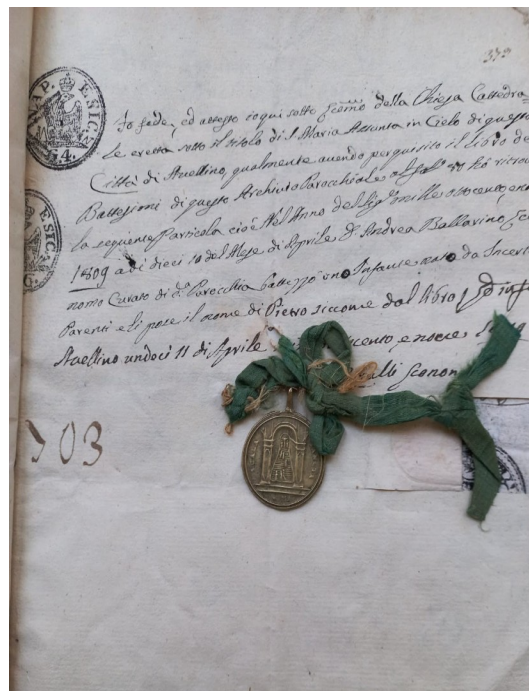 373
NAP. E SIC.
G. 4.
E SIC.
Fo fede, ed attesto io qui sotto della Chiesa Cattedra
le eretta sotto il titolo di S. Maria Assunta in Cielo di questa
Città di Avellino, qualmente avendo perquisito il libro de
Battesimi di questo Archivio Parocchiale al ho ritrov
la sequente Particola cioè Nell'Anno del mille ottocento, e no
1809 a di dieci 10 del Mese di Aprile D. Andrea Ballarino
nomo Curato di d.ª Parocchia battezzò uno Infante nato da Incerti
Parenti e li pose il nome di Pietro siccome dal libro
Avellino undeci 11 di Aprile cento, e nove
Sconom
703